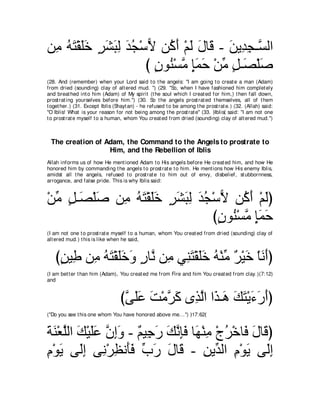 مِن خَلَقْتَهُ لِبَشَرٍ لاًّسْجُدَ أَكُن لَمْ قَالَ - السَّـجِدِينَ
( مَّسْنُونٍ حَمَإٍ مِّنْ صَلْصَـلٍ
(28. And (remember) when your Lord said to the angels: "I am going to create a man (Adam)
from dried (sounding) clay of altered mud. ") (29. "So, when I have fashioned him completely
and breathed into him (Adam) of My spirit (the soul which I created for him,) then fall down,
prostrating yourselves before him.") (30. So the angels prostrated themselves, all of them
together.) (31. Except Iblis (Shaytan) - he refused to be among the prostrate.) (32. (Allah) said:
"O Iblis! What is your reason for not being among the prostrate" (33. [Iblis] said: "I am not one
to prostrate myself to a human, whom You created from dried (sounding) clay of altered mud.")
The creation of Adam, the Command to the Angels to prostrate to
Him, and the Rebellion of Iblis
Allah informs us of how He mentioned Adam to His angels before He created him, and how He
honored him by commanding the angels to prostrate to him. He mentions how His enemy Iblis,
amidst all the angels, refused to prostrate to him out of envy, disbelief, stubbornness,
arrogance, and false pride. This is why Iblis said:
مِّنْ صَلْصَـلٍ مِن خَلَقْتَهُ لِبَشَرٍ لاًّسْجُدَ أَكُن لَمْ)
(مَّسْنُونٍ حَمَإٍ
(I am not one to prostrate myself to a human, whom You created from dried (sounding) clay of
altered mud.) this is like when he said,
(طِينٍ مِن وَخَلَقْتَهُ نَّارٍ مِن خَلَقْتَنِي مِّنْهُ خَيْرٌ أَنَاْ)
(I am better than him (Adam), You created me from Fire and him You created from clay.)(7:12)
and
(عَلَىَّ كَرَّمْتَ الَّذِى هَـذَا أَرَءَيْتَكَ)
("Do you see this one whom You have honored above me...")17:62(
اللَّعْنَةَ عَلَيْكَ وَإِنَّ - رَجِيمٌ فَإِنَّكَ مِنْهَا فَاخْرُجْ قَالَ)
يَوْمِ إِلَى فَأَنظِرْنِى رَبِّ قَالَ - الدِّينِ يَوْمِ إِلَى